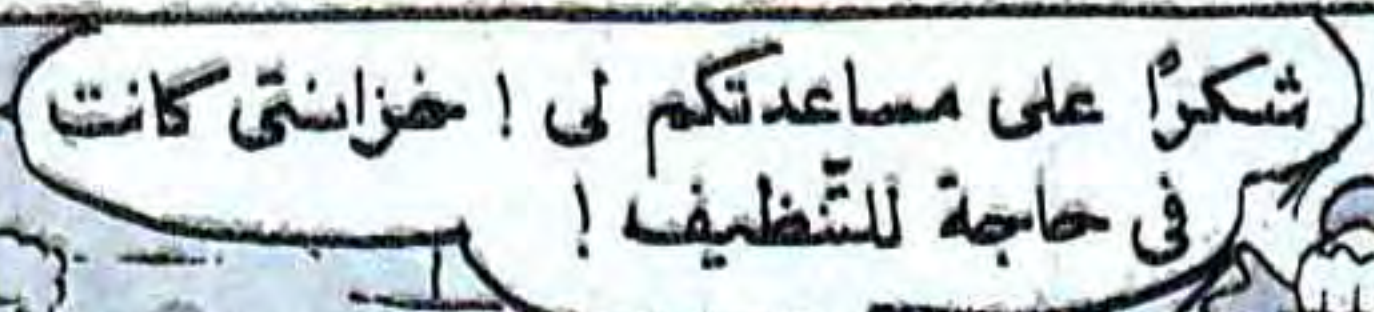 شكرًا على مساعدتكم لى ! خزانتى كانت
فى حاجة للتّنظيف !